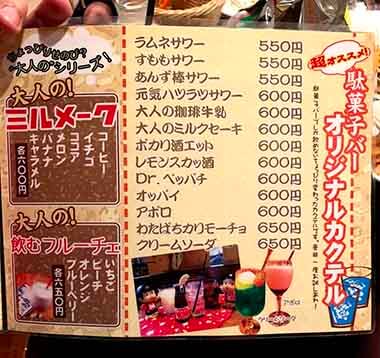 超オススメ!
駄菓子バー
オリジナルカクテル
ラムネサワー 550円
すももサワー 550円
あんず棒サワー 550円
元気ハツラツサワー 600円
大人の珈琲牛乳 600円
大人のミルクセーキ 600円
ポカリ酒エット 600円
レモンスカッ酒 600円
Dr.ペッパチ 600円
オッパイ 600円
アポロ 600円
わたぱちかりモーチョ 650円
クリームソーダ 650円
アポロ
クリームソーダ
ちょっぴりせのび?
"大人の"シリーズ!
大人の!
ミルメーク
コーヒー
イチゴ
ココア
メロン
バナナ
キャラメル
各六〇〇円
大人の!
飲むフルーチェ
いちご
ピーチ
オレンジ
ブルーベリー
各六五〇円